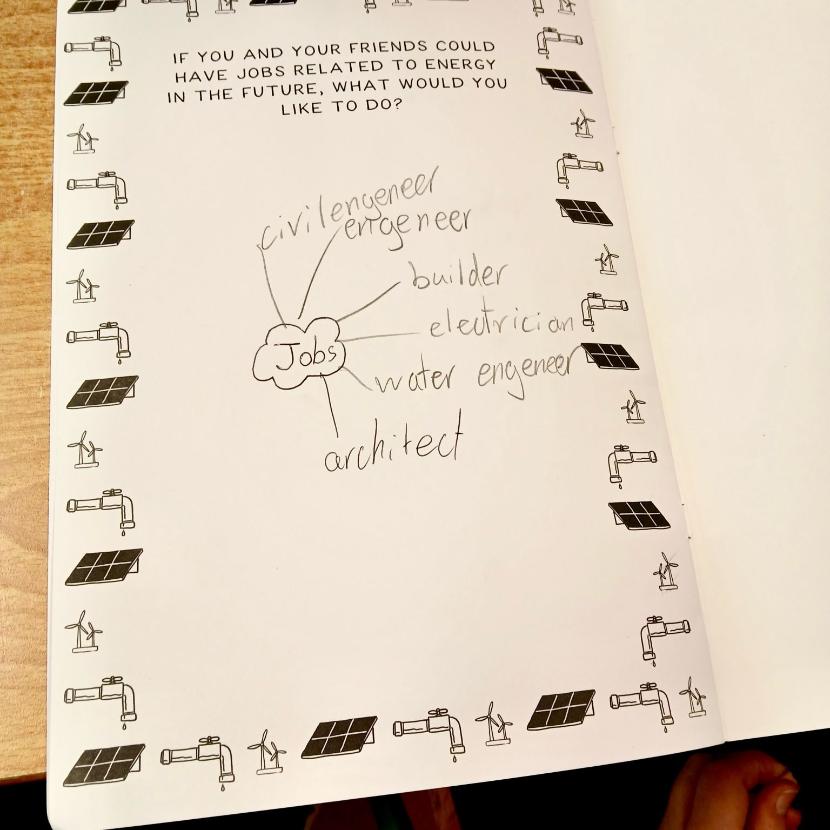 IF YOU AND YOUR FRIENDS COULD
HAVE JOBS RELATED TO ENERGY
IN THE FUTURE, WHAT WOULD YOU
LIKE TO DO?
civil engeneer
engeneer
builder
electrician
Jobs
water engeneer
architect